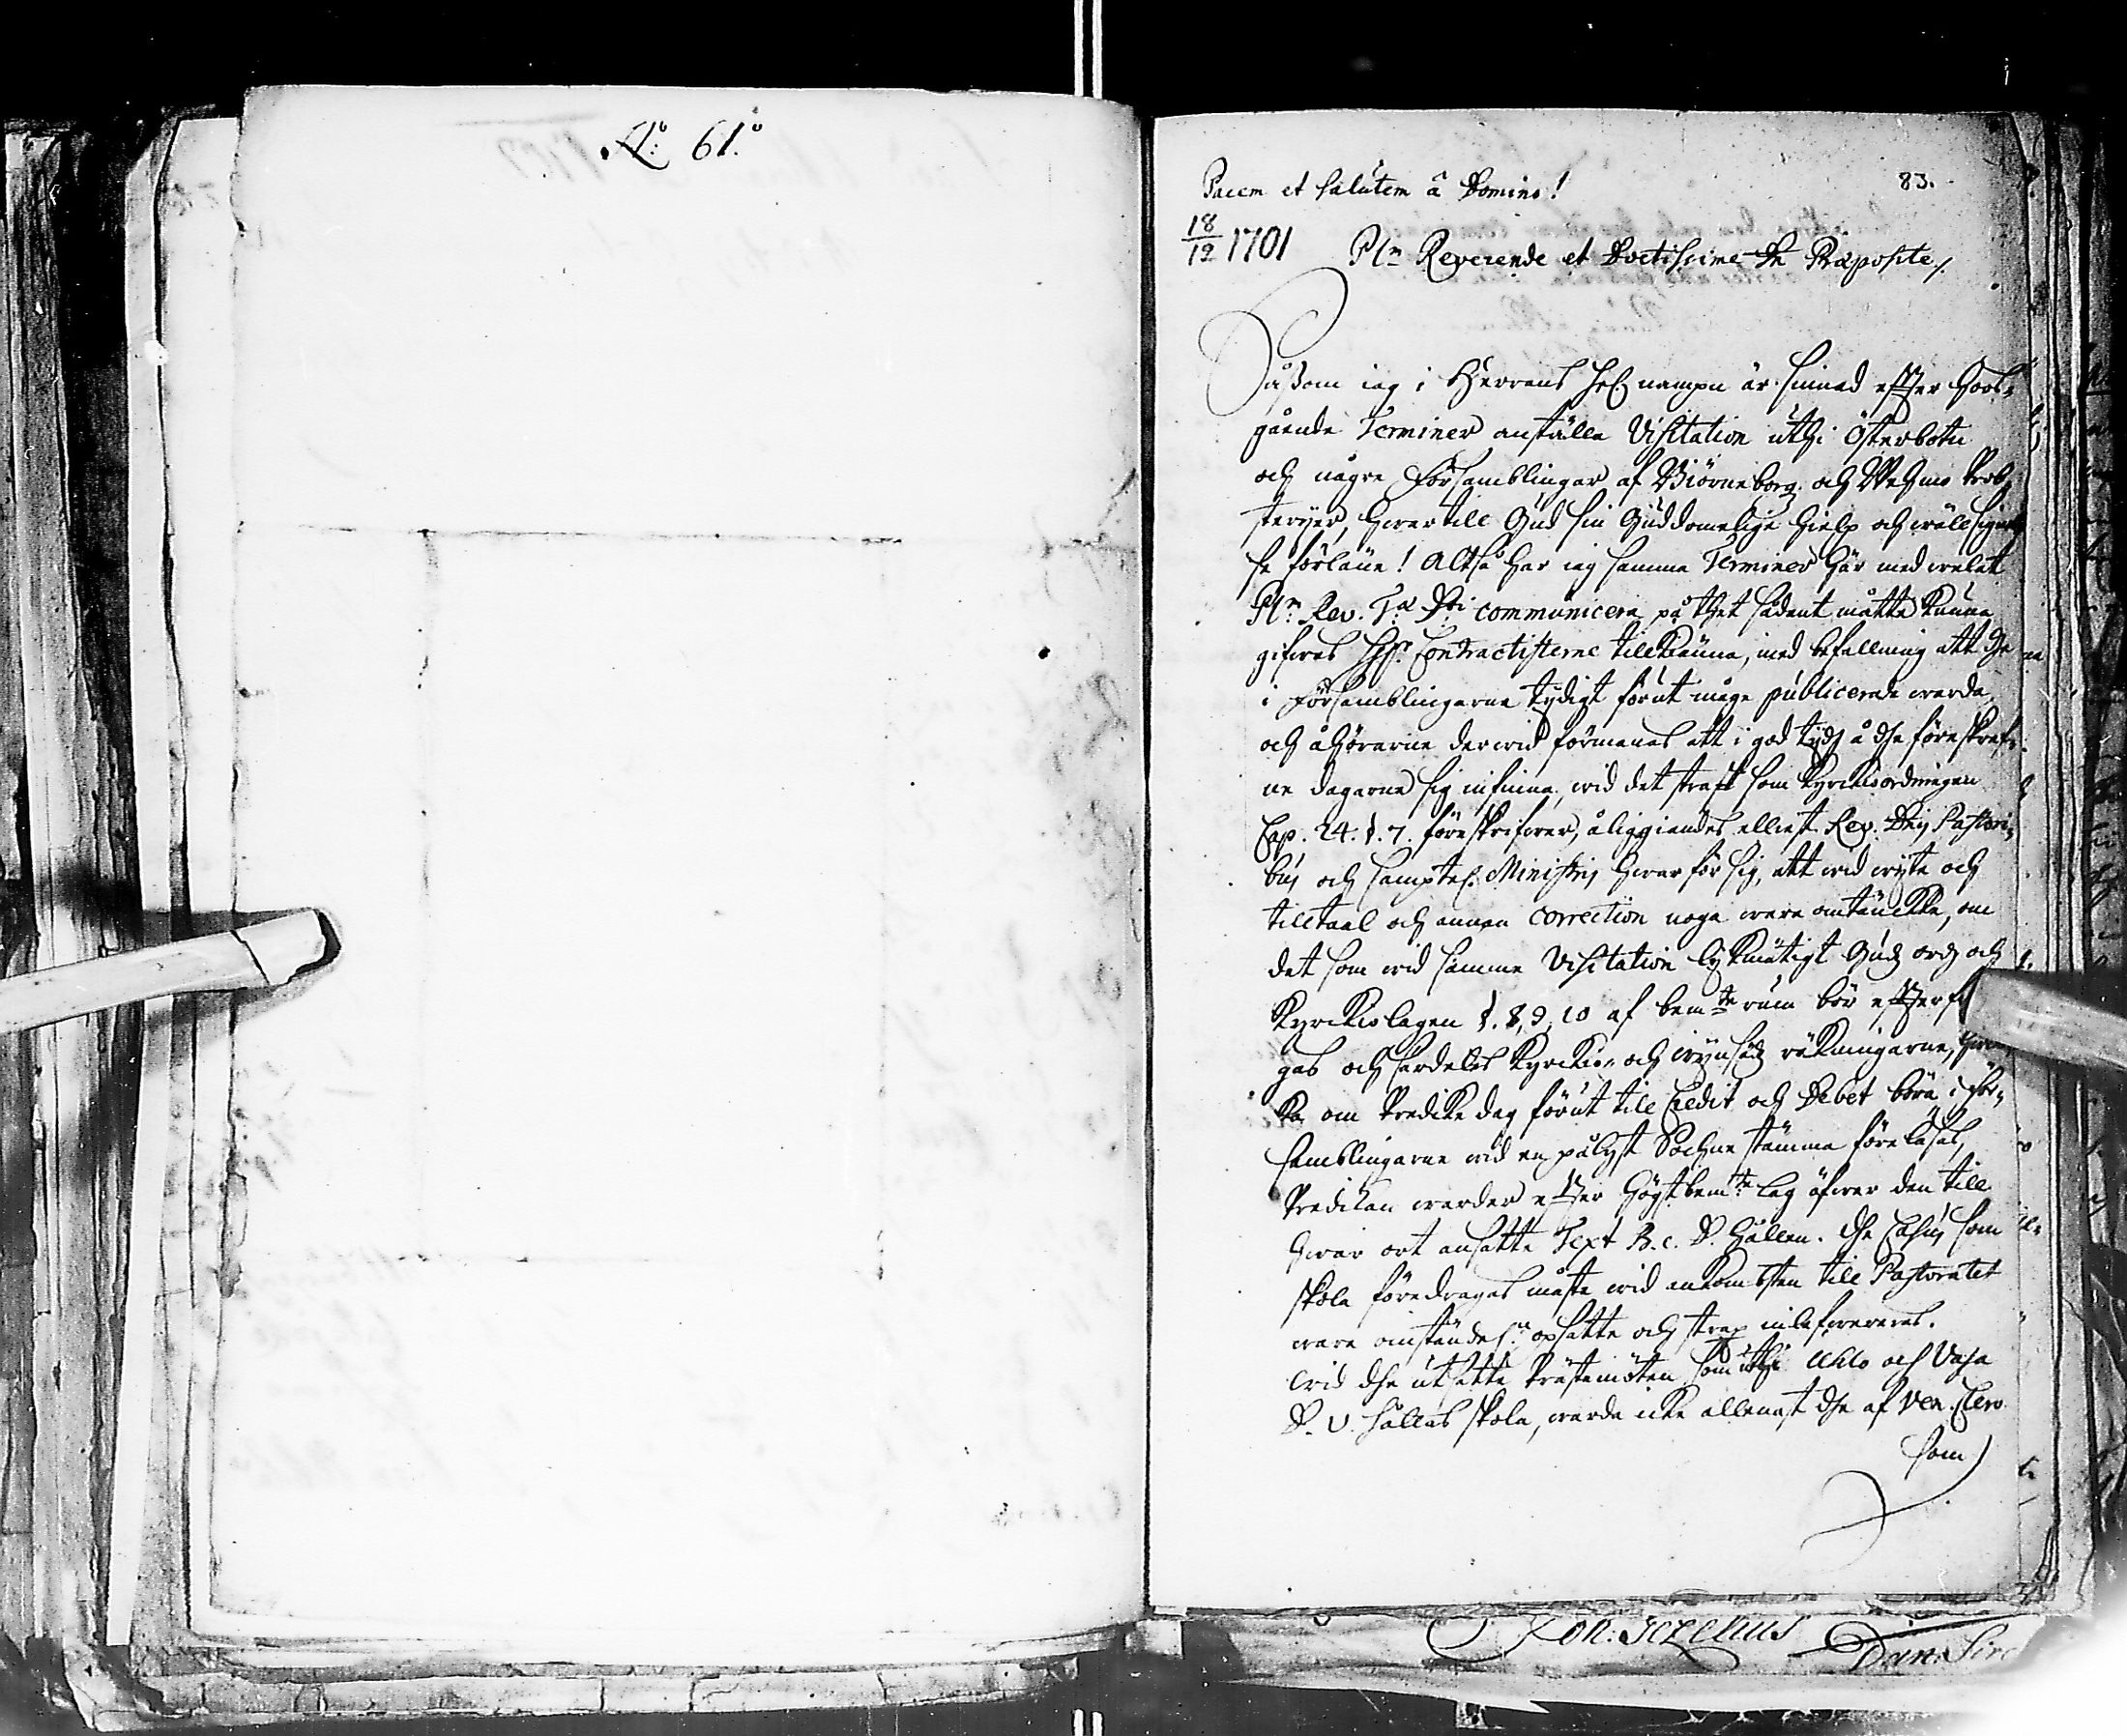 N:o 61.
83.
Pacem et salutem â Domino!
18/12 1701 Pl:m Reverende et Doctissime Dn Præposite,
Såsom iag i Herrens hel. nampn är sinnad effter
gående Terminer anställa Visitation uthi Österbotn
och någre Församblingar af Biörneborg och Wehmo Prob,
sterijer, hwar till Gud sin Guddomelige hielp och wällsignel
se förläne! Altså har iag samma Terminer här med welat
Pl:m Rev. T:æ D:ni communicera på thet sådant måtte kunna
gifwas Contractisterne tillkänna, med befallning att dhe
i Församblingarne tijdigt förut måge publicerade warda,
och åhörarne der wid förmanas att i god tijdh å dhe föreskref,
ne dagarne sig infinna, wid det straff som Kyrckioordningen
Cap. 24. §. 7. föreskrifwer, åliggiandes elliest Rev. Dnis Pastori,
bus och samptel. Ministris hwar för sig, att wid wijte och
tilltaal och annan correction noga wara omtänckte, om
det som wid samma Visitation lijkmätigt Gudz ordh och
Kyrckiolagen §. 8, 9, 10 af bem:te rum bör effterföl
gas och särdeles Kyrckio- och räkningarne,
ka om Predikedag förut till Credit och Debet böra i för,
samblingarne wid en pålyst Sochne stämma föreläsas,
Predikan warder effter högstbem:te lag öfwer den till
hwar ort ansatte Text B. c. D. hållen. Dhe Casus som
skola föredragas måste wid ankomsten till Pastoratet
wara opsatte och strax inlefwereras.
Wid dhe utsatte Prästemöten som uthi Uhlo och Vasa
D. V. hållas skola, warda icke allenast dhe af Ven. Clero
som
Joh. Gezelius
Dan.